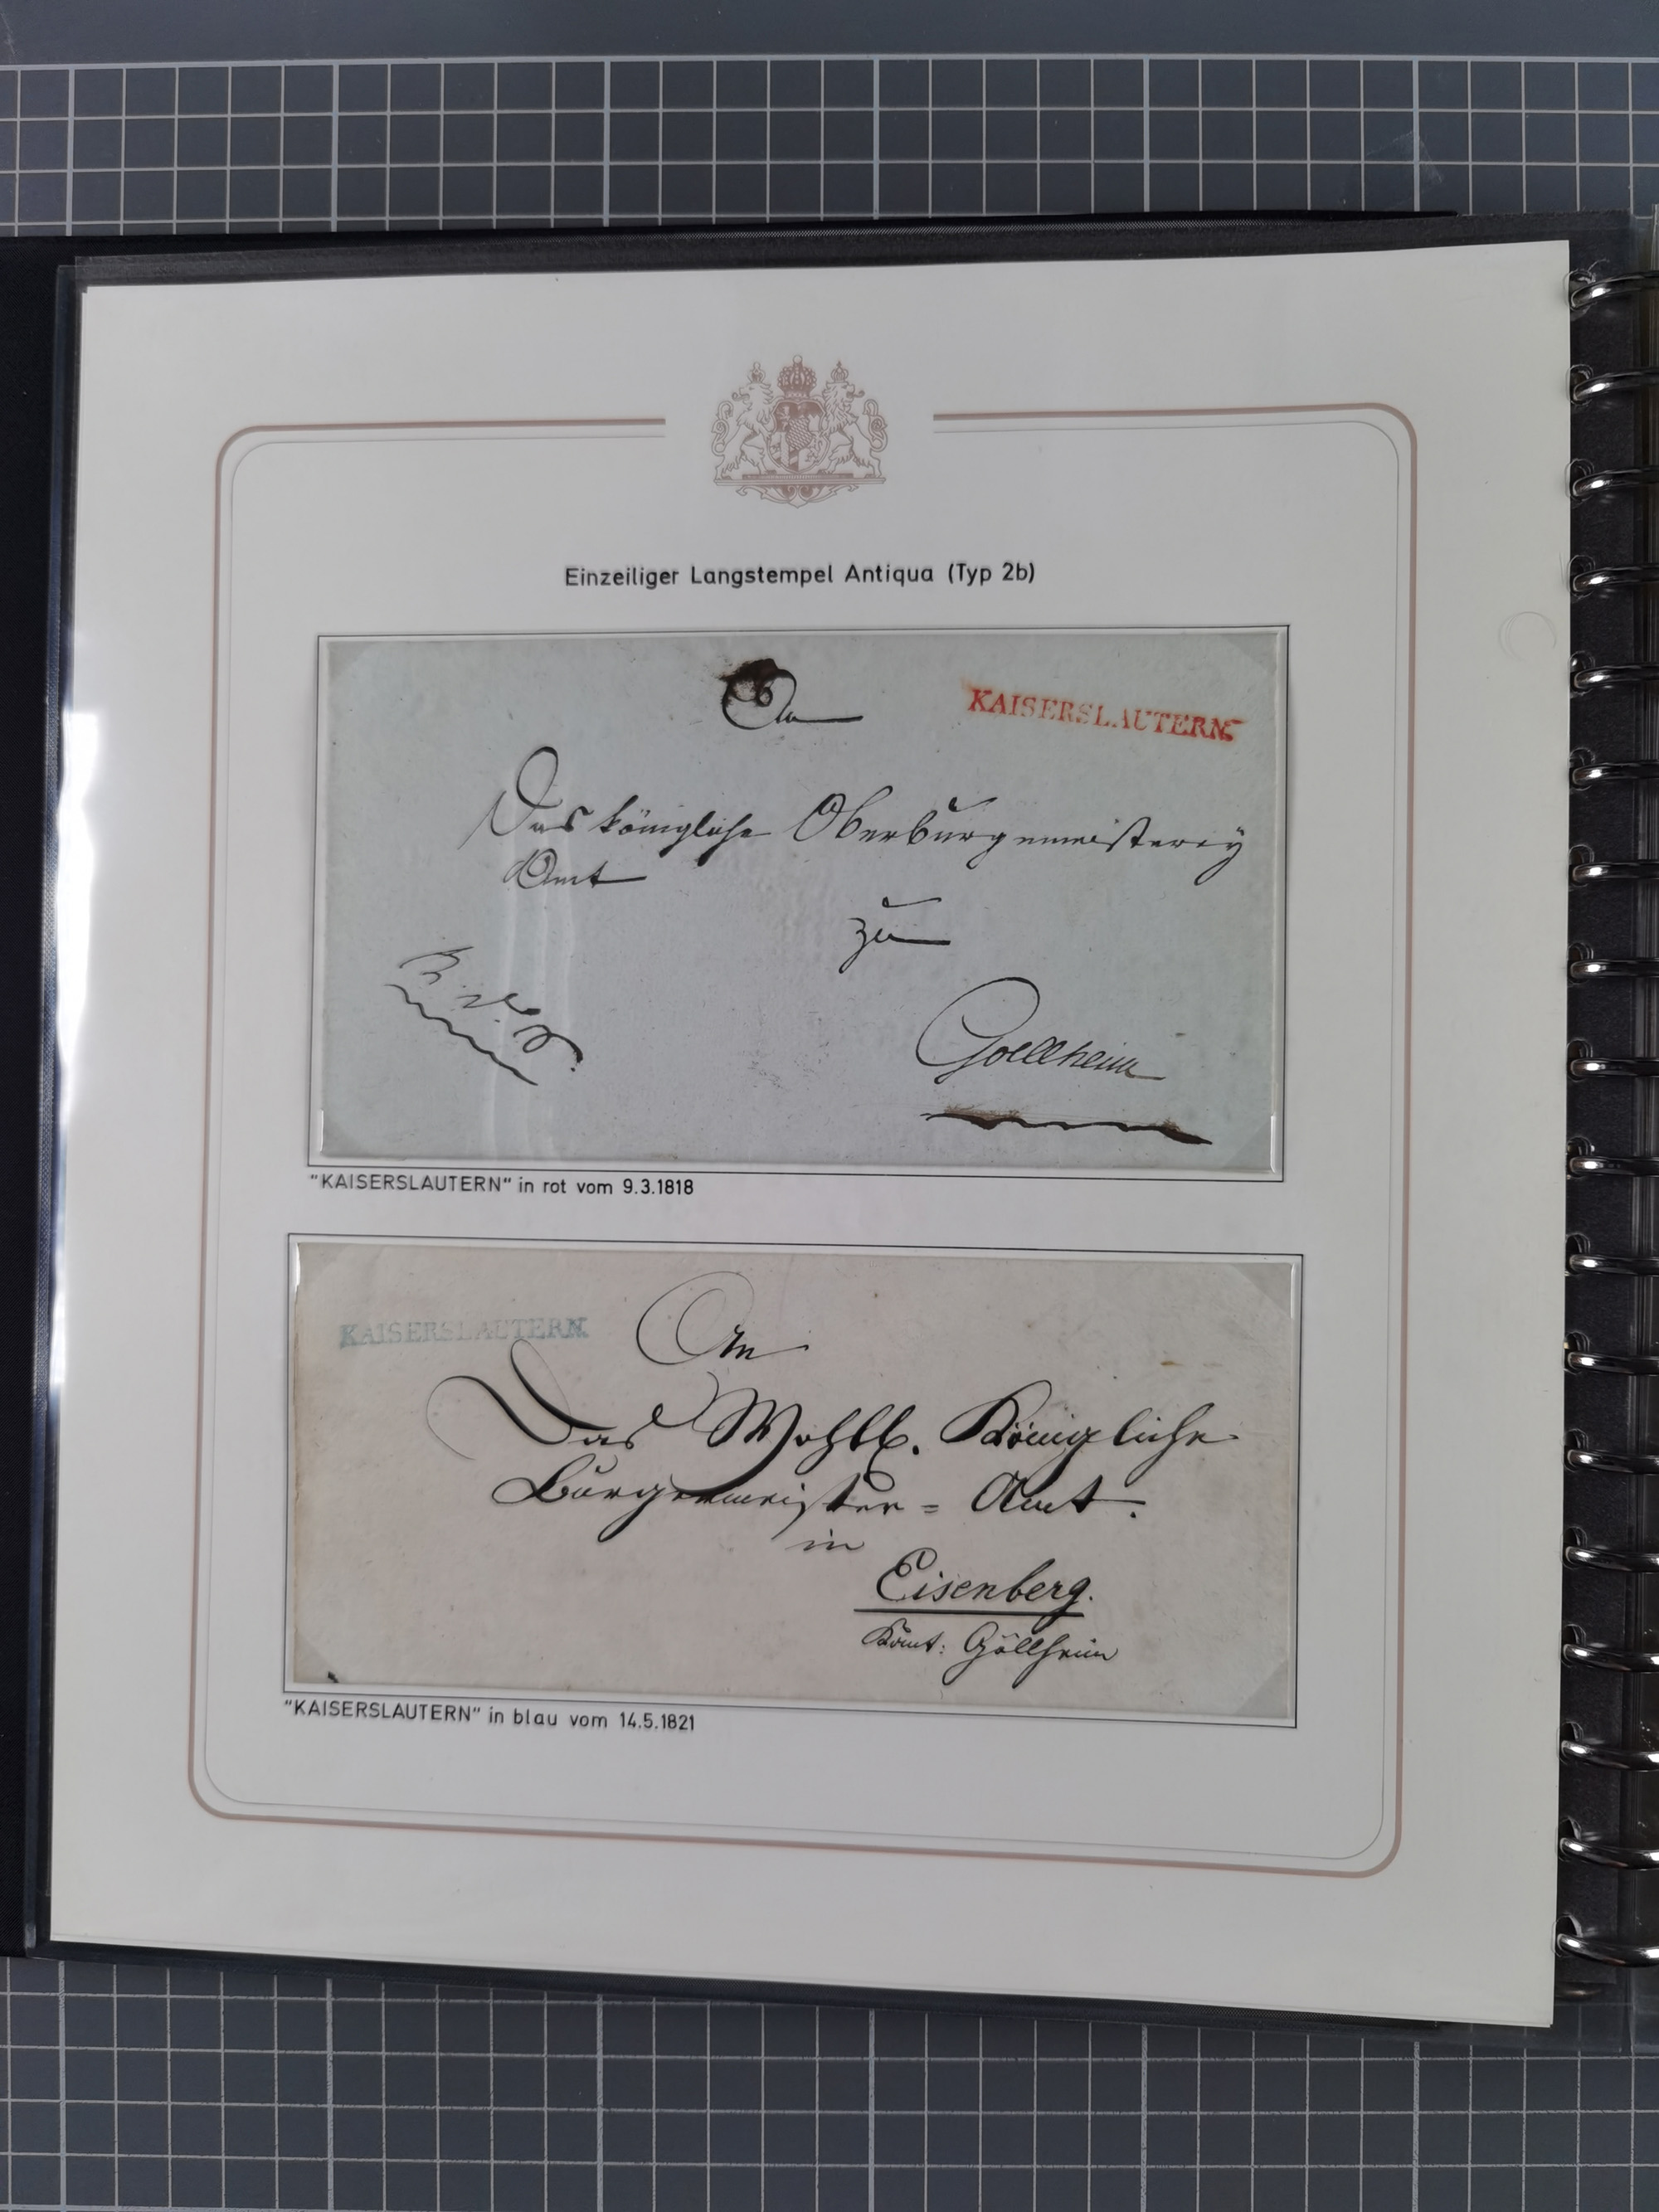 Einzeiliger Langstempel Antiqua (Typ 2b)
An
KAISERSLAUTERN
Das königliche Oberbürgemeisterey
Amt
zu
Goellheim
"KAISERSLAUTERN" in rot vom 9.3.1818
KAISERSLAUTERN
An
Das Wohll. Königliche
Bürgermeister = Amt.
in
Eisenberg.
Kant: Göllheim
"KAISERSLAUTERN" in blau vom 14.5.1821